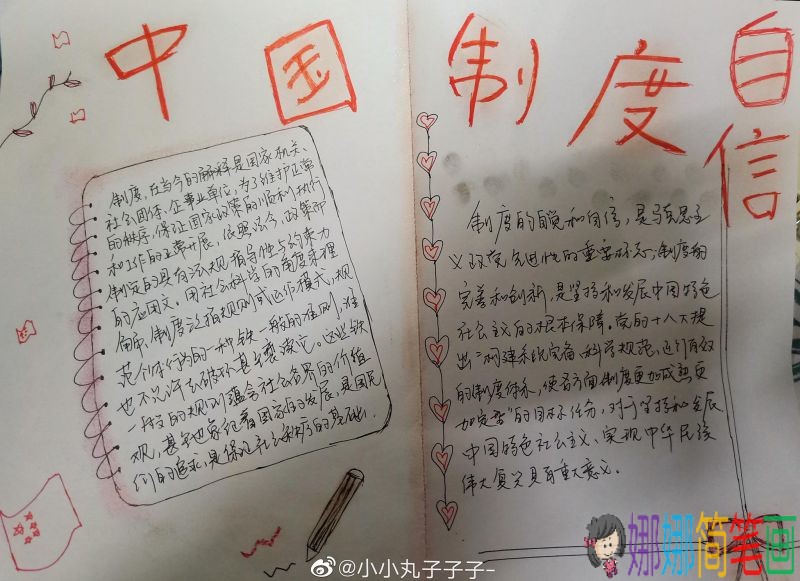 中国制度自信
制度,在当今的解释是国家机关、
社会团体、企事业单位,为了维护正常
的秩序,保证国家政策的顺利执行
和工作的正常开展,依照法令、政策而
制定的具有法规指导性与约束力
的应用文。用社会科学的角度来理
解,制度泛指规则或运作模式,规
范个体行为的一种铁一般的准则,准
也不允许去破坏甚至亵渎它。这些铁
一般的规则蕴含社会各界的价值
观,甚至也象征着国家的发展,是国民
们的追求,是保证社会秩序的基础。
制度的自觉和自信,是马克思主
义政党先进性的重要标志;制度的
完善和创新,是坚持和发展中国特色
社会主义的根本保障。党的十八大提
出“构建系统完备、科学规范、运行有效
的制度体系,使各方面制度更加成熟更
加定型”的目标任务,对于坚持和发展
中国特色社会主义、实现中华民族
伟大复兴具有重大意义。
娜娜简笔画
@小小丸子子子-